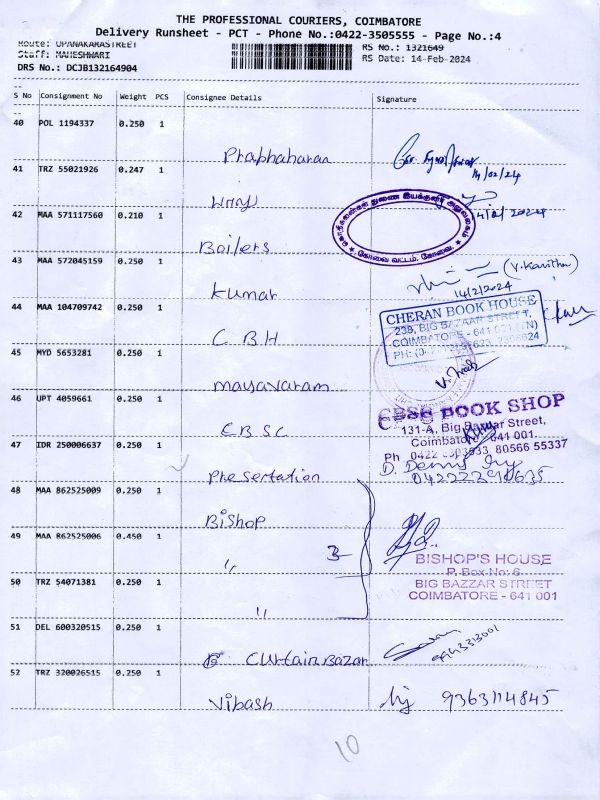 THE PROFESSIONAL COURIERS, COIMBATORE
Delivery Runsheet - PCT - Phone No.:0422-3505555 - Page No.:4
Route: UPANAKARASTREET
RS No.: 1321649
Staff: MAHESHWARI
RS Date: 14-Feb-2024
DRS No.: DCJB132164904
S No Consignment No Weight PCS Consignee Details Signature
40 POL 1194337 0.250 1
Prabhaharan
14/02/24
41 TRZ 55021926 0.247 1
42 MAA 571117560 0.210 1
Boilers
கோவை வட்டம், கோவை.
43 MAA 572045159 0.250 1
Kumar
(V. Kavitha)
14/2/2024
44 MAA 104709742 0.250 1
CBH
CHERAN BOOK HOUSE
238, BIG BAZAAR STREET,
COIMBATORE - 641 001 (TN)
45 MYD 5653281 0.250 1
mayavaram
46 UPT 4059661 0.250 1
CBSC
CBSE BOOK SHOP
131-A, Big Bazaar Street,
Coimbatore - 641 001.
47 IDR 250006637 0.250 1
Presertation
80566 55337
48 MAA 862525009 0.250 1
Bishop
49 MAA 862525006 0.450 1
"
3
BISHOP'S HOUSE
P. Box No: 6
BIG BAZZAR STREET
COIMBATORE - 641 001
50 TRZ 54071381 0.250 1
"
51 DEL 600320515 0.250 1
Curtain Bazar
52 TRZ 320026515 0.250 1
Vibash
9363114845
10